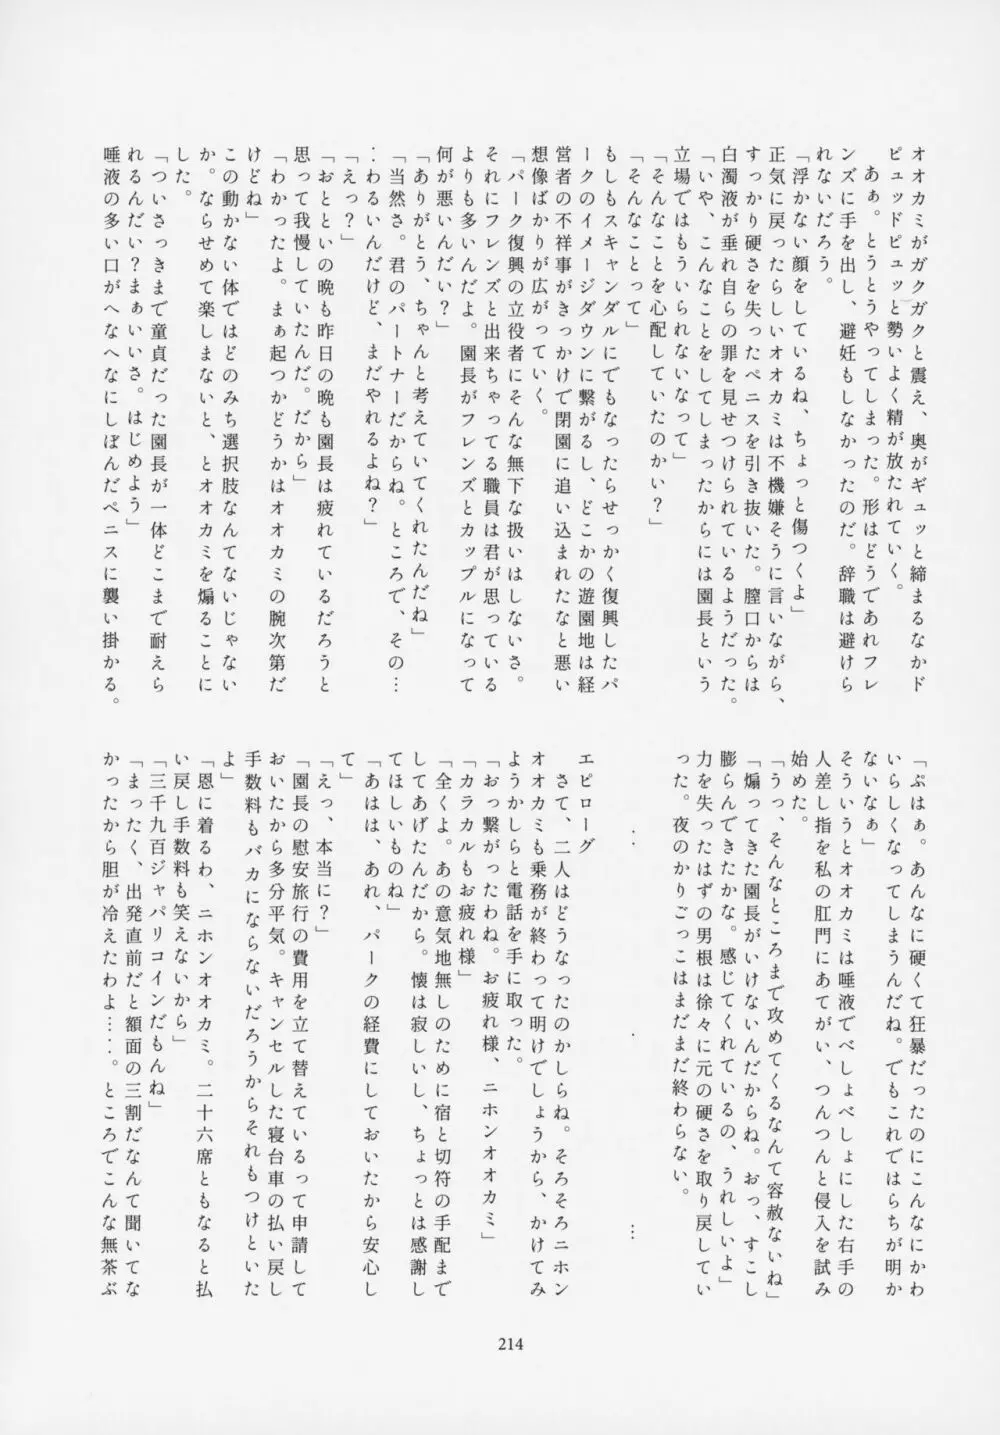 オオカミがガクガクと震え、奥がギュッと締まるなかド
ピュッドピュッと勢いよく精が放たれていく。
あぁ。とうとうやってしまった。形はどうであれフレ
ンズに手を出し、避妊もしなかったのだ。辞職は避けら
れないだろう。
「浮かない顔をしているね、ちょっと傷つくよ」
正気に戻ったらしいオオカミは不機嫌そうに言いながら、
すっかり硬さを失ったペニスを引き抜いた。膣口からは
白濁液が垂れ自らの罪を見せつけられているようだった。
「いや、こんなことをしてしまったからには園長という
立場ではもういられないなって」
「そんなことを心配していたのかい？」
「そんなことって」
もしもスキャンダルにでもなったらせっかく復興したパ
ークのイメージダウンに繋がるし、どこかの遊園地は経
営者の不祥事がきっかけで閉園に追い込まれたなど悪い
想像ばかりが広がっていく。
「パーク復興の立役者にそんな無下な扱いはしないさ。
それにフレンズと出来ちゃってる職員は君が思っている
よりも多いんだよ。園長がフレンズとカップルになって
何が悪いんだい？」
「ありがとう、ちゃんと考えていてくれたんだね」
「当然さ。君のパートナーだからね。ところで、その…
…わるいんだけど、まだやれるよね？」
「えっ？」
「おとといの晩も昨日の晩も園長は疲れているだろうと
思って我慢していたんだ。だから」
「わかったよ。まぁ起つかどうかはオオカミの腕次第だ
けどね」
この動かない体ではどのみち選択肢なんてないじゃない
か。ならせめて楽しまないと、とオオカミを煽ることに
した。
「ついさっきまで童貞だった園長が一体どこまで耐えら
れるんだい？まぁいいさ。はじめよう」
唾液の多い口がへなへなにしぼんだペニスに襲い掛かる。
「ぷはぁ。あんなに硬くて狂暴だったのにこんなにかわ
いらしくなってしまうんだね。でもこれではらちが明か
ないなぁ」
そういうとオオカミは唾液でべしょべしょにした右手の
人差し指を私の肛門にあてがい、つんつんと侵入を試み
始めた。
「うっ、そんなところまで攻めてくるなんて容赦ないね」
「煽ってきた園長がいけないんだからね。おっ、すこし
膨らんできたかな。感じてくれているの、うれしいよ」
力を失ったはずの男根は徐々に元の硬さを取り戻してい
った。夜のかりごっこはまだまだ終わらない。
・　・　…
エピローグ
さて、二人はどうなったのかしらね。そろそろニホン
オオカミも乗務が終わって明けでしょうから、かけてみ
ようかしらと電話を手に取った。
「おっ繋がったわね。お疲れ様、ニホンオオカミ」
「カラカルもお疲れ様」
「全くよ。あの意気地無しのために宿と切符の手配まで
してあげたんだから。懐は寂しいし、ちょっとは感謝し
てほしいものね」
「あはは、あれ、パークの経費にしておいたから安心し
て」
「えっ、本当に？」
「園長の慰安旅行の費用を立て替えているって申請して
おいたから多分平気。キャンセルした寝台車の払い戻し
手数料もバカにならないだろうからそれもつけといた
よ」
「恩に着るわ、ニホンオオカミ。二十六席ともなると払
い戻し手数料も笑えないから」
「三千九百ジャパリコインだもんね」
「まったく、出発直前だと額面の三割だなんて聞いてな
かったから胆が冷えたわよ……。ところでこんな無茶ぶ
214